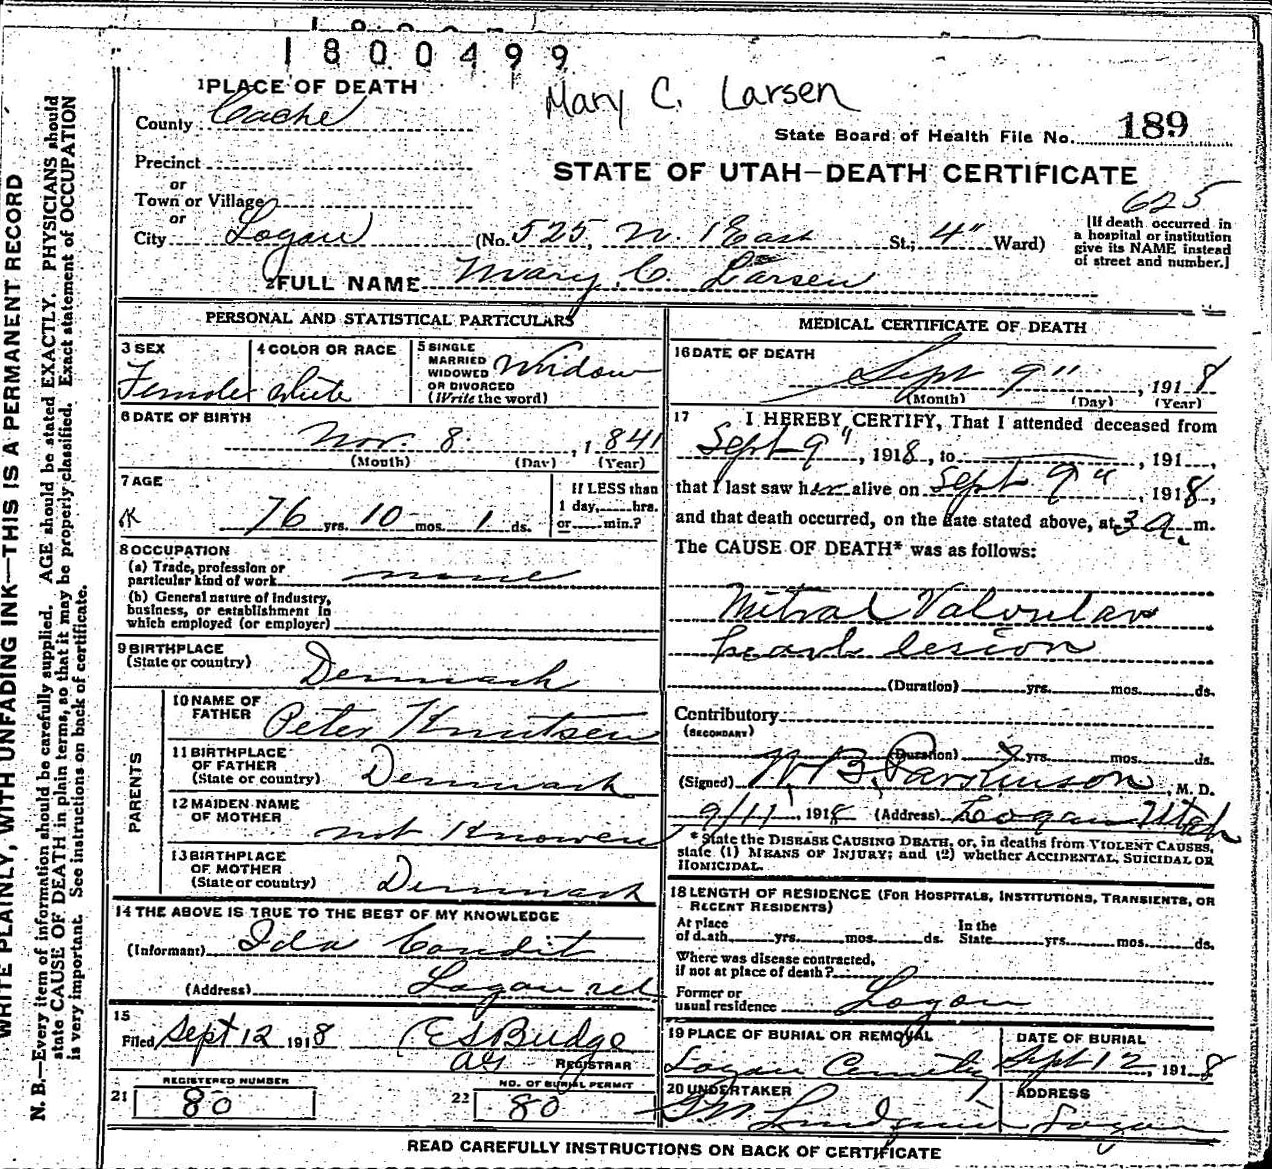 1800499
Mary C. Larsen
1 PLACE OF DEATH
County Cache
State Board of Health File No. 189
Precinct
STATE OF UTAH—DEATH CERTIFICATE
or
Town or Village
625
or
City Logan (No. 525, N. 1 East St.; 4" Ward)
[If death occurred in a hospital or institution give its NAME instead of street and number.]
2 FULL NAME Mary C. Larsen
PERSONAL AND STATISTICAL PARTICULARS
3 SEX Female
4 COLOR OR RACE White
5 SINGLE MARRIED WIDOWED OR DIVORCED (Write the word) Widow
6 DATE OF BIRTH
Nov. 8, 1841
(Month) (Day) (Year)
7 AGE
76 yrs. 10 mos. 1 ds.
If LESS than 1 day,......hrs. or......min.?
8 OCCUPATION
(a) Trade, profession or particular kind of work none
(b) General nature of industry, business, or establishment in which employed (or employer)
9 BIRTHPLACE (State or country) Denmark
PARENTS
10 NAME OF FATHER Peter Knutsen
11 BIRTHPLACE OF FATHER (State or country) Denmark
12 MAIDEN NAME OF MOTHER not Knowen
13 BIRTHPLACE OF MOTHER (State or country) Denmark
14 THE ABOVE IS TRUE TO THE BEST OF MY KNOWLEDGE
(Informant) Ida Condit
(Address) Logan
15
Filed Sept 12 1918 E S Budge
REGISTRAR
21 REGISTERED NUMBER 80
22 NO. OF BURIAL PERMIT 80
MEDICAL CERTIFICATE OF DEATH
16 DATE OF DEATH
Sept 9", 1918
(Month) (Day) (Year)
17 I HEREBY CERTIFY, That I attended deceased from
Sept 9", 1918, to , 191 ,
that I last saw her alive on Sept 9", 1918,
and that death occurred, on the date stated above, at 3 a. m.
The CAUSE OF DEATH* was as follows:
Mitral Valvular
heart lesion
(Duration) yrs. mos. ds.
Contributory
(SECONDARY)
(Duration) yrs. mos. ds.
(Signed) W B Parkinson, M. D.
9/11, 1918 (Address) Logan Utah
*State the DISEASE CAUSING DEATH, or, in deaths from VIOLENT CAUSES,
state (1) MEANS OF INJURY; and (2) whether ACCIDENTAL, SUICIDAL OR
HOMICIDAL.
18 LENGTH OF RESIDENCE (FOR HOSPITALS, INSTITUTIONS, TRANSIENTS, OR
RECENT RESIDENTS)
At place of death yrs. mos. ds. In the State yrs. mos. ds.
Where was disease contracted,
if not at place of death?
Former or
usual residence Logan
19 PLACE OF BURIAL OR REMOVAL DATE OF BURIAL
Logan Cemetery Sept 12, 1918
20 UNDERTAKER ADDRESS
Logan
READ CAREFULLY INSTRUCTIONS ON BACK OF CERTIFICATE
WRITE PLAINLY, WITH UNFADING INK—THIS IS A PERMANENT RECORD
N. B.—Every item of information should be carefully supplied. AGE should be stated EXACTLY. PHYSICIANS should
state CAUSE OF DEATH in plain terms, so that it may be properly classified. Exact statement of OCCUPATION
is very important. See instructions on back of certificate.